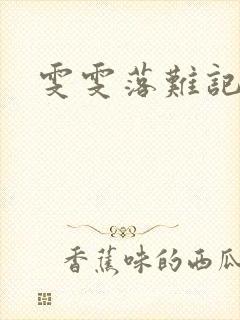 雯雯落難記
香蕉味的西瓜